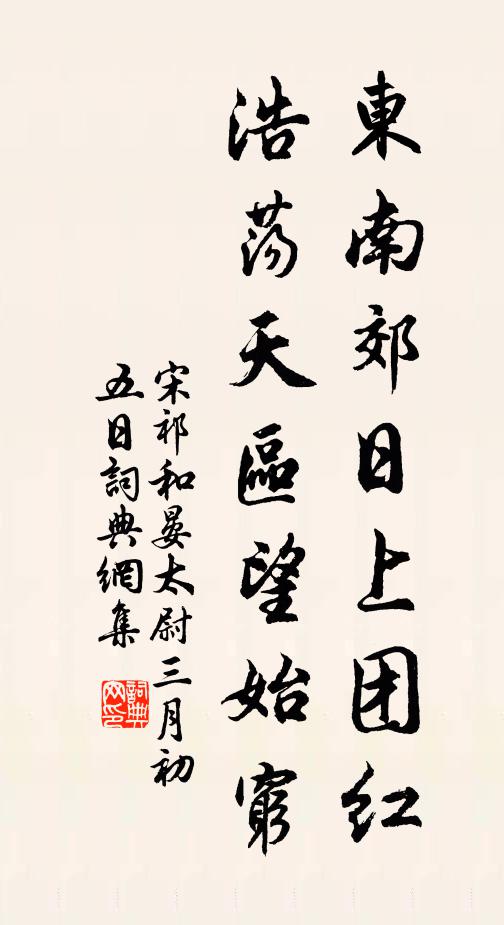 東南郊日上团红
浩荡天區望始窮
宋祁和晏太尉三月初
五日詞典網集
詞典
网印